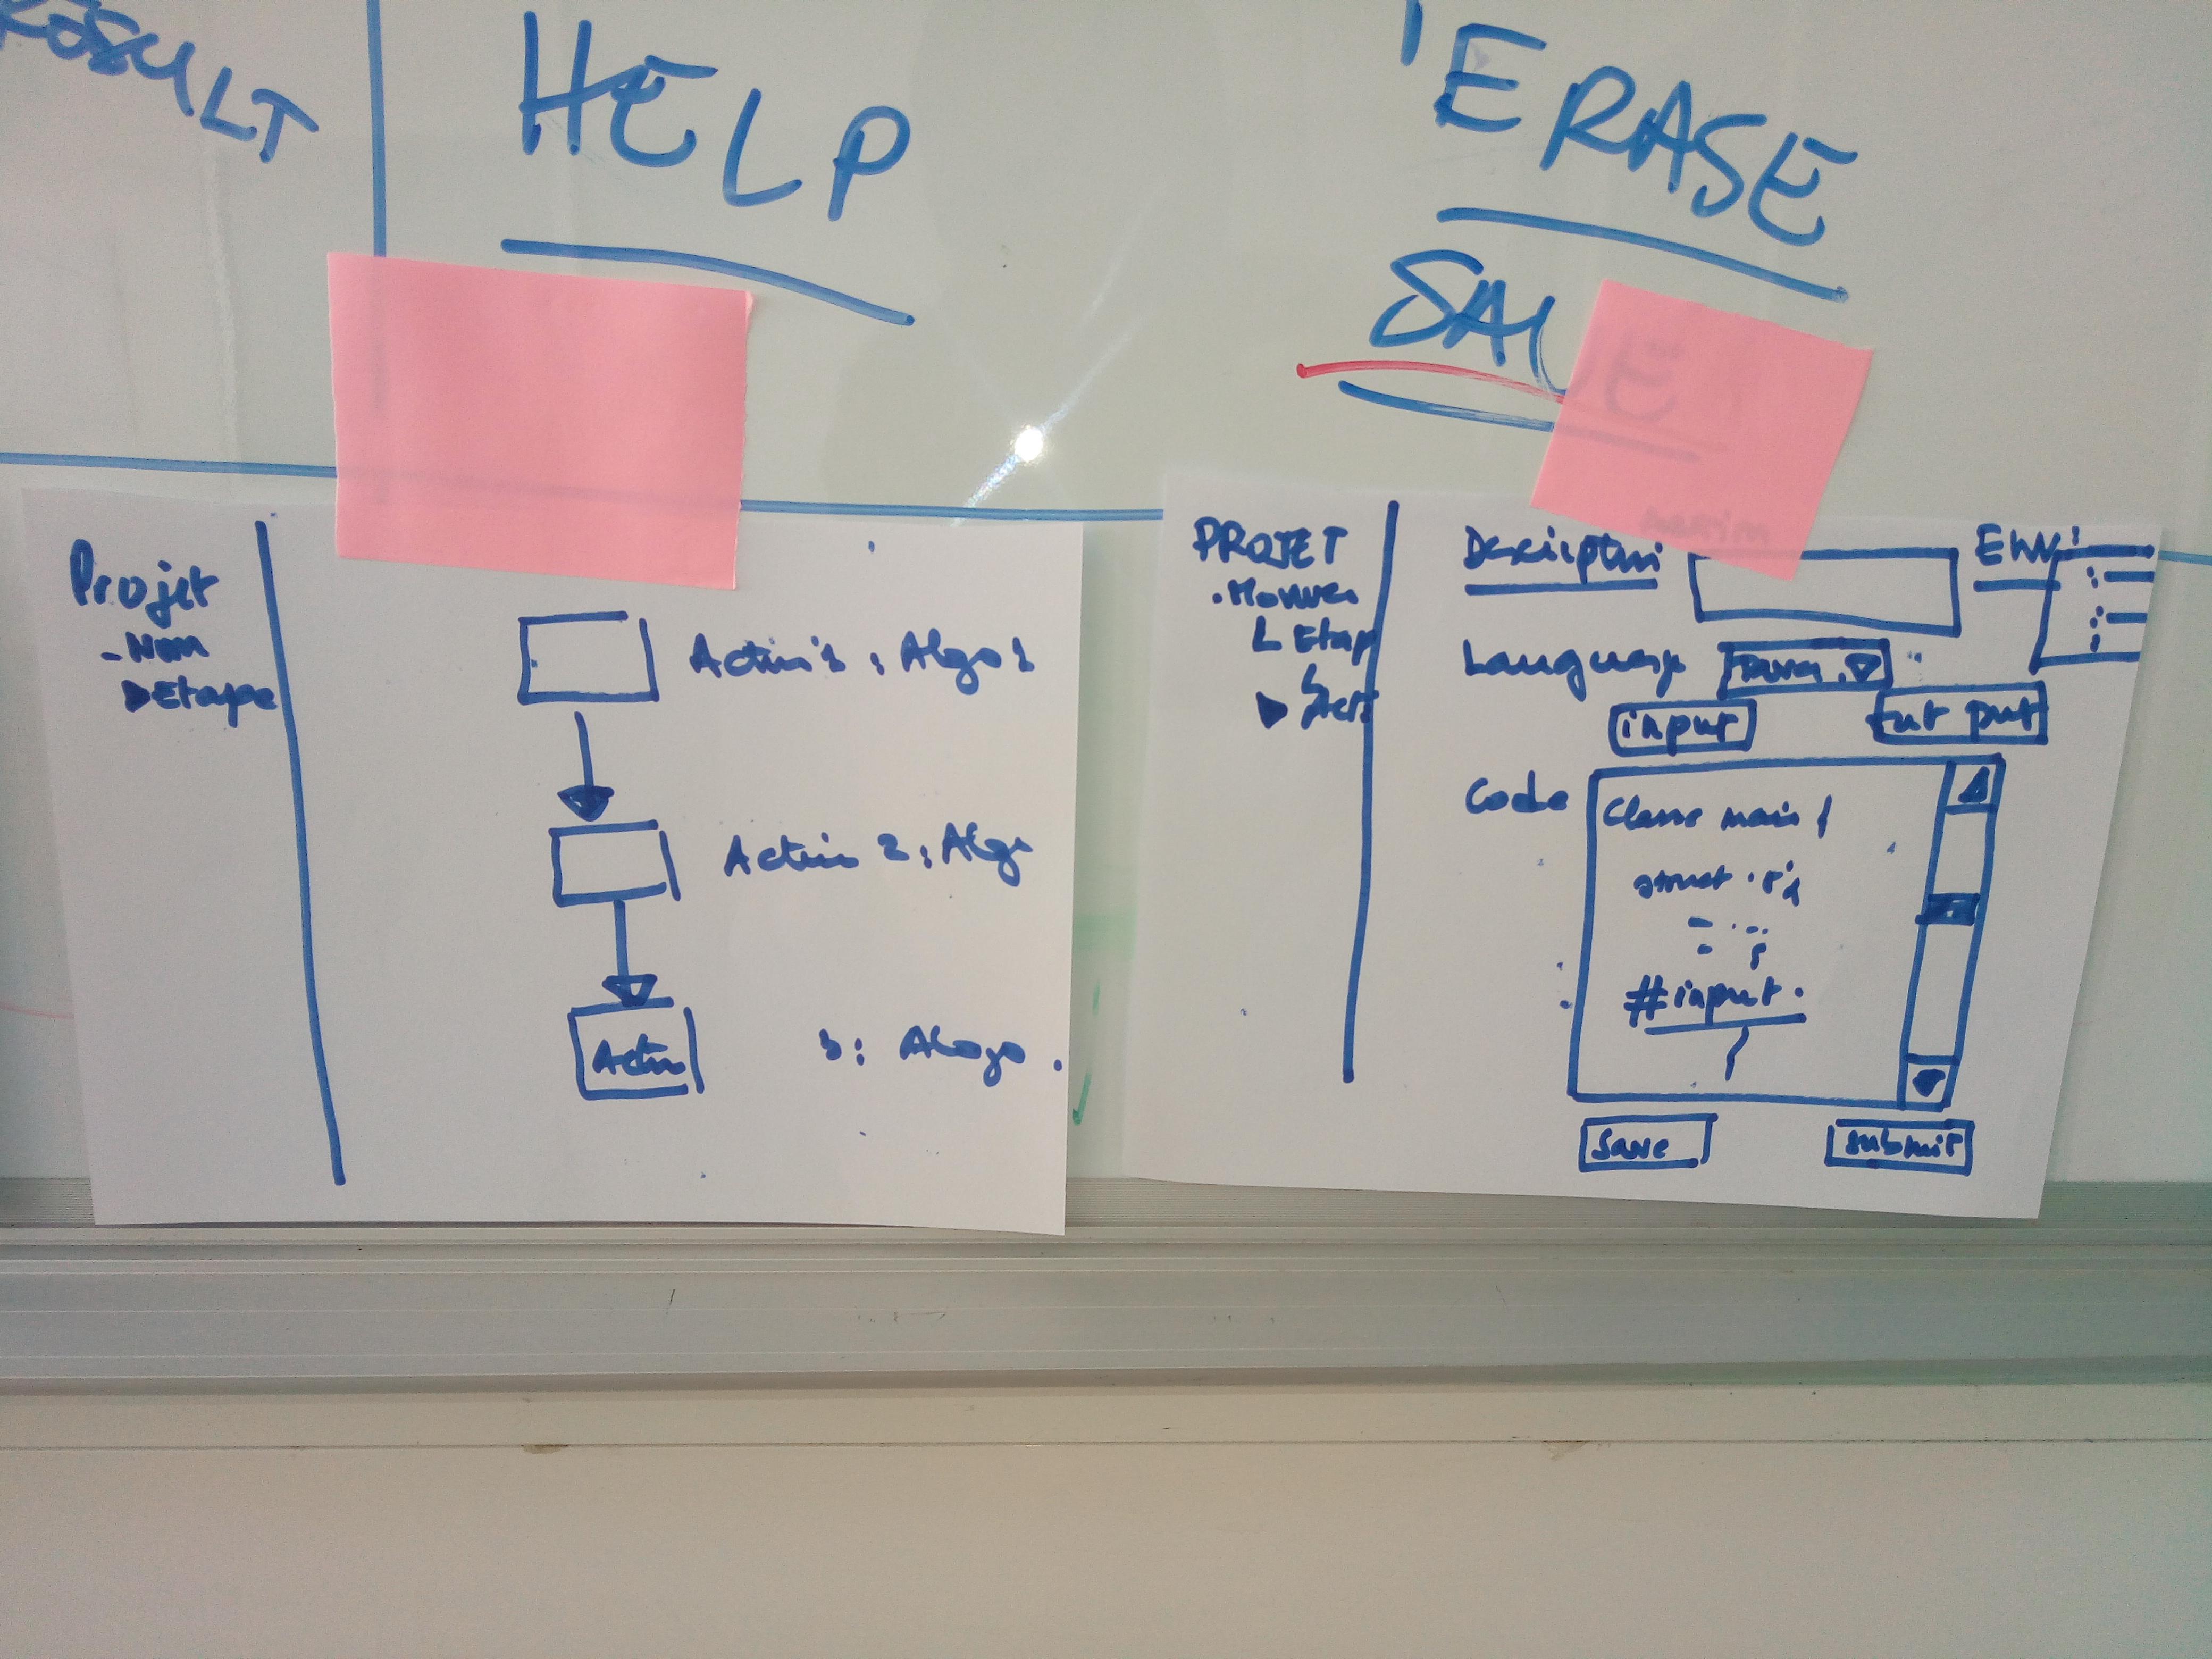 RESULT
HELP
ERASE
SAVE
Projet
- Nom
Etape
Action 1 : Algo 1
Action 2 : Algo
Action
3 : Alogo .
PROJET
Etap
Description
Envi
Language
Java
input
Out put
Code
Classe main {
struct
#input .
}
Save
submit